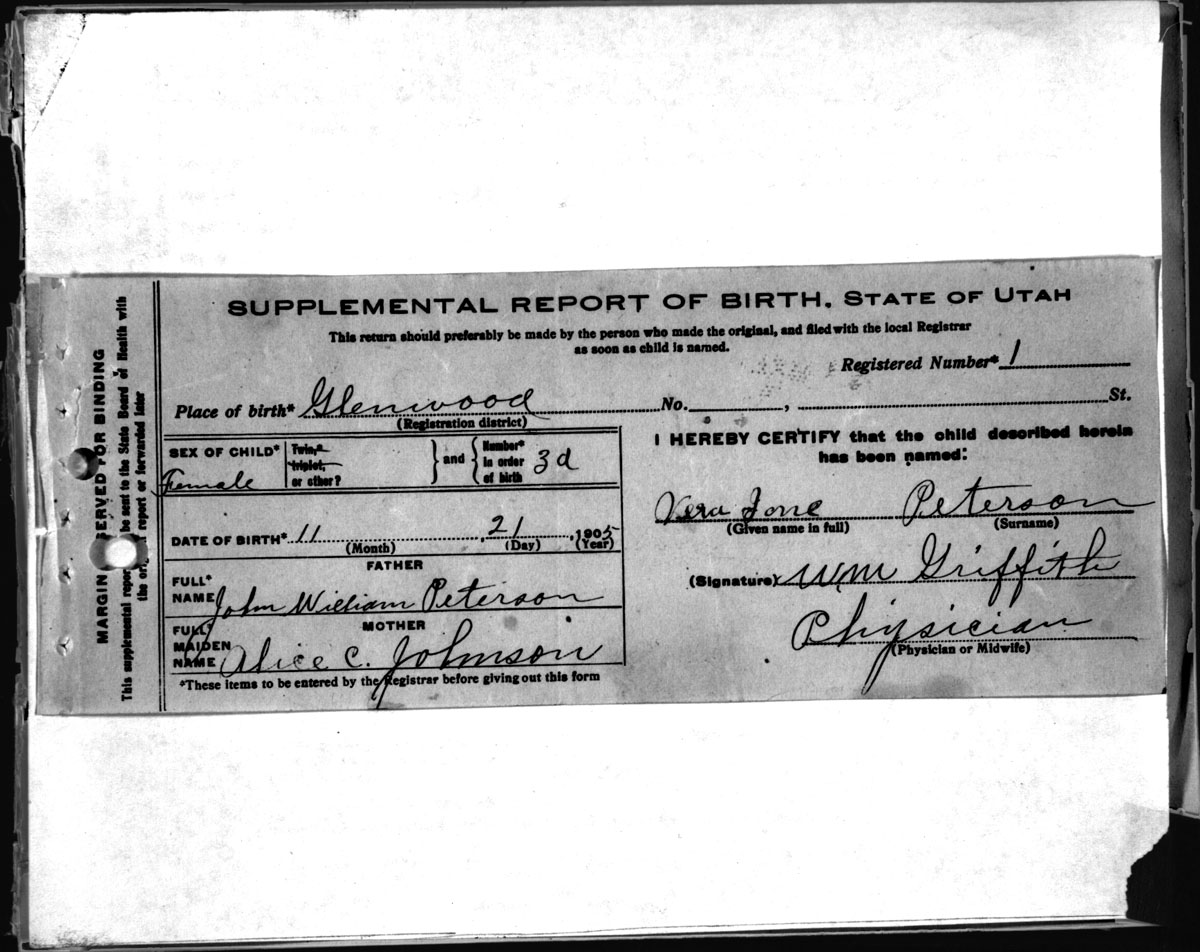 SUPPLEMENTAL REPORT OF BIRTH. STATE OF UTAH
This return should preferably be made by the person who made the original, and filed with the local Registrar
as soon as child is named.
Registered Number* 1
Place of birth* Glenwood No. , St.
(Registration district)
SEX OF CHILD* Female
Twin,*
triplet,
or other?
} and {
Number*
in order
of birth
3d
DATE OF BIRTH* 11 , 21 , 1905
(Month) (Day) (Year)
FATHER
FULL*
NAME John William Peterson
MOTHER
FULL
MAIDEN
NAME Alice C. Johnson
*These items to be entered by the Registrar before giving out this form
I HEREBY CERTIFY that the child described herein
has been named:
Vera Peterson
(Given name in full) (Surname)
(Signature) Wm Griffith
Physician
(Physician or Midwife)
MARGIN SERVED FOR BINDING
This supplemental repor be sent to the State Board of Health with
the ori report or forwarded later